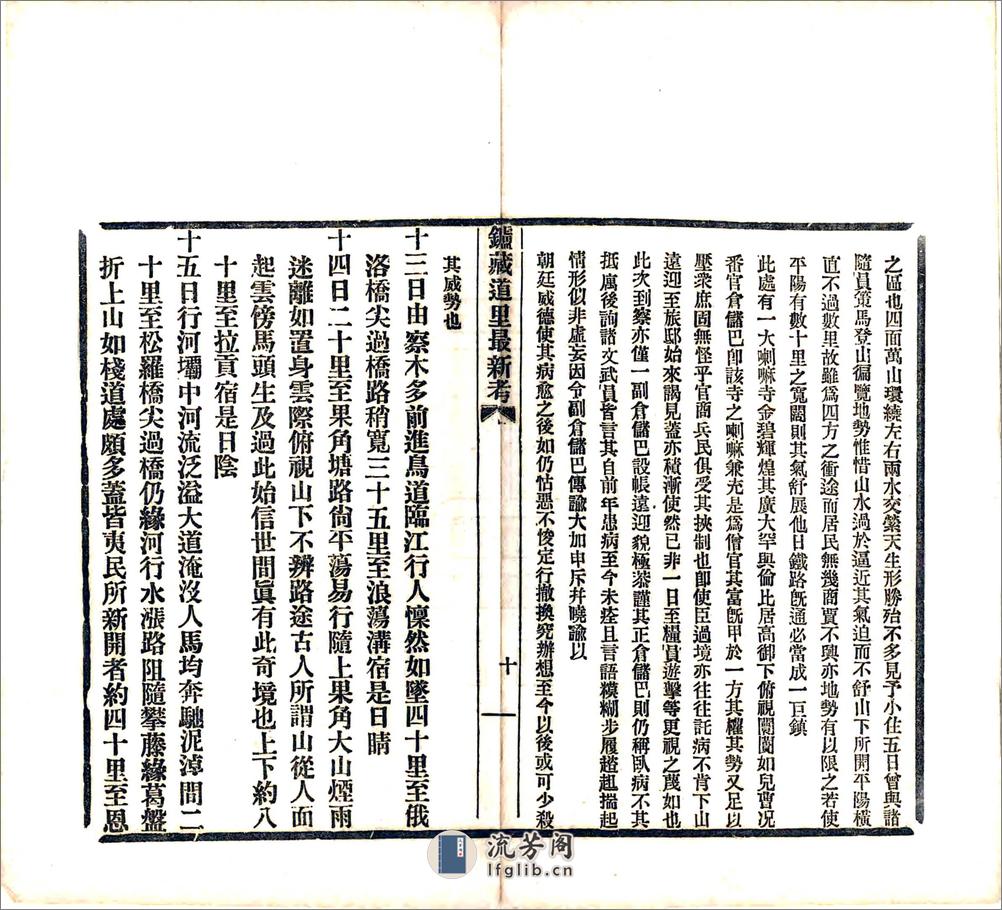 之區也四面萬山環繞左右兩水交縈天生形勝殆不多見予小住五日曾與諸
隨員策馬登山徧覽地勢惟惜山水過於逼近其氣迫而不舒山下所開平陽橫
直不過數里故雖爲四方之衝途而居民無幾商賈不興亦地勢有以限之若使
平陽有數十里之寬闊則其氣舒展他日鐵路旣通必當成一巨鎮
此處有一大喇嘛寺金碧輝煌其廣大罕與倫比居高御下俯視闤闠如兒曹况
番官倉儲巴卽該寺之喇嘛兼充是爲僧官其富旣甲於一方其權其勢又足以
壓衆庶固無怪乎官商兵民俱受其挾制也卽使臣過境亦往往託病不肯下山
遠迎至旅邸始來謁見蓋亦積漸使然已非一日至糧員遊擊等更視之蔑如也
此次到察亦僅一副倉儲巴設帳遠迎貌極恭謹其正倉儲巴則仍稱臥病不其
抵寓後詢諸文武員皆言其自前年患病至今未痊且言語糢糊步履趑趄揣起
情形似非虛妄因令副倉儲巴傳諭大加申斥幷曉諭以
朝廷威德使其病愈之後如仍怙惡不悛定行撤換究辦想至今以後或可少殺
鑪藏道里最新考
十
其威勢也
十三日由察木多前進鳥道臨江行人懍然如墜四十里至俄
洛橋尖過橋路稍寬三十五里至浪蕩溝宿是日晴
十四日二十里至果角塘路尙平蕩易行隨上果角大山煙雨
迷離如置身雲際俯視山下不辨路途古人所謂山從人面
起雲傍馬頭生及過此始信世間眞有此奇境也上下約八
十里至拉貢宿是日陰
十五日行河壩中河流泛溢大道淹沒人馬均奔馳泥淖間二
十里至松羅橋尖過橋仍緣河行水漲路阻隨攀藤緣葛盤
折上山如棧道處頗多蓋皆夷民所新開者約四十里至恩
流芳阁
lfglib.cn